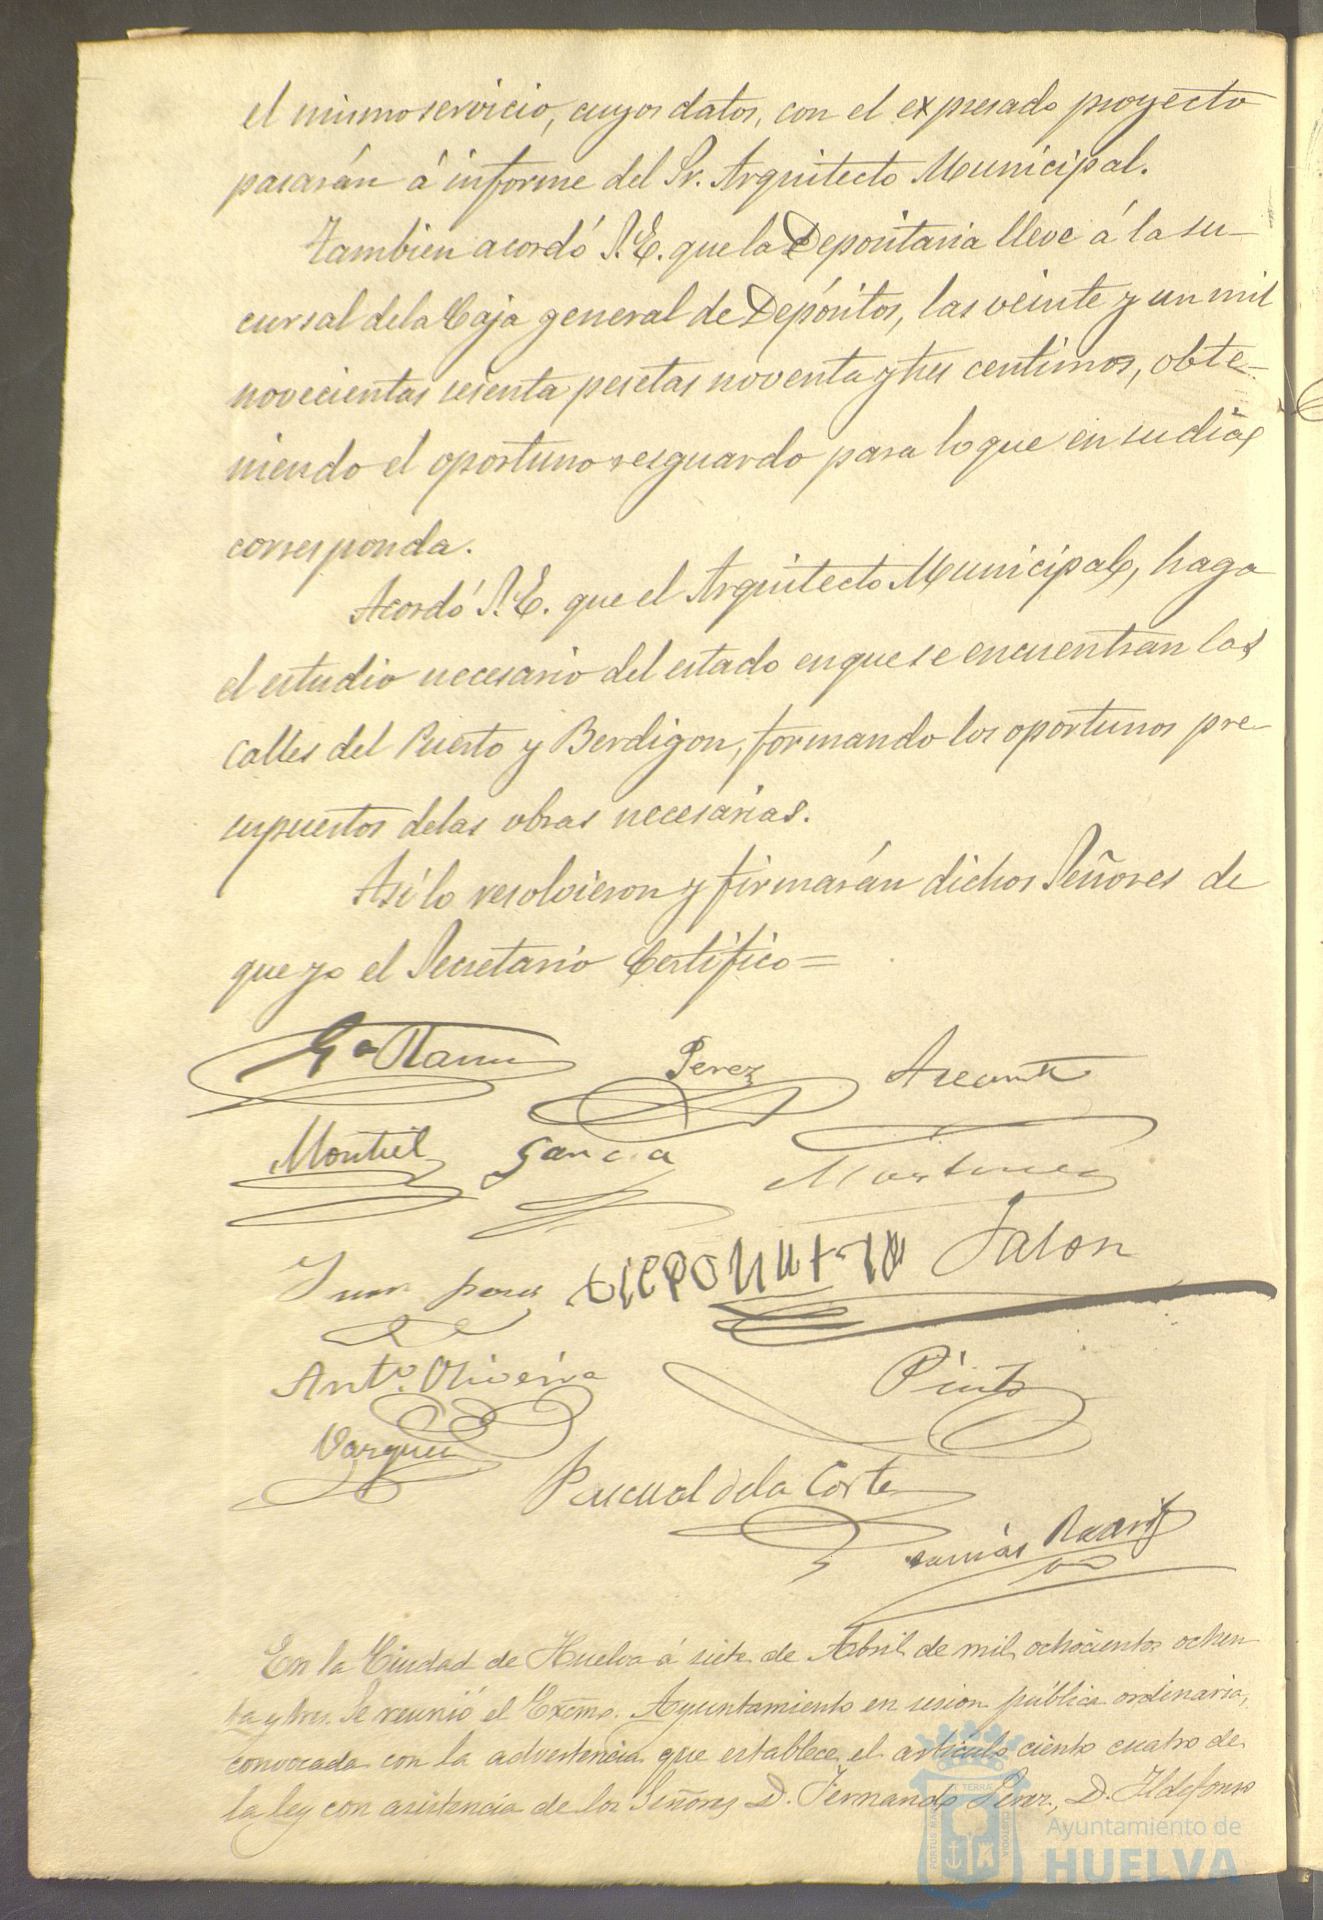 el mismo servicio, cuyos datos, con el expresado proyecto
pasarán á informe del Sr. Arquitecto Municipal.
Tambien acordó S.E. que la Depositaria lleve á la su-
cursal de la Caja general de Depósitos, las veinte y un mil
novecientas sesenta pesetas noventa y tres centimos, obte-
niendo el oportuno resguardo para lo que en su dia
corresponda.
Acordó S.E. que el Arquitecto Municipal, haga
el estudio necesario del estado en que se encuentran las
calles del Puerto y Berdigon, formando los oportunos pre-
supuestos de las obras necesarias.
Asi lo resolvieron y firmarán dichos Señores de
que yo el Secretario Certifico=
Gª Ramos
Perez
Montiel
Garcia
Martinez
Jalon
Antº. Oliveira
Pinto
Vazquez
Pascual de la Corte
En la Ciudad de Huelva á siete de Abril de mil ochocientos ochen
ta y tres. Se reunió el Excmo. Ayuntamiento en sesion pública ordinaria,
convocada con la advertencia que establece el articulo ciento cuatro de
la ley con asistencia de los Señores D. Fernando Perez, D. Ildefonso
Ayuntamiento de
HUELVA